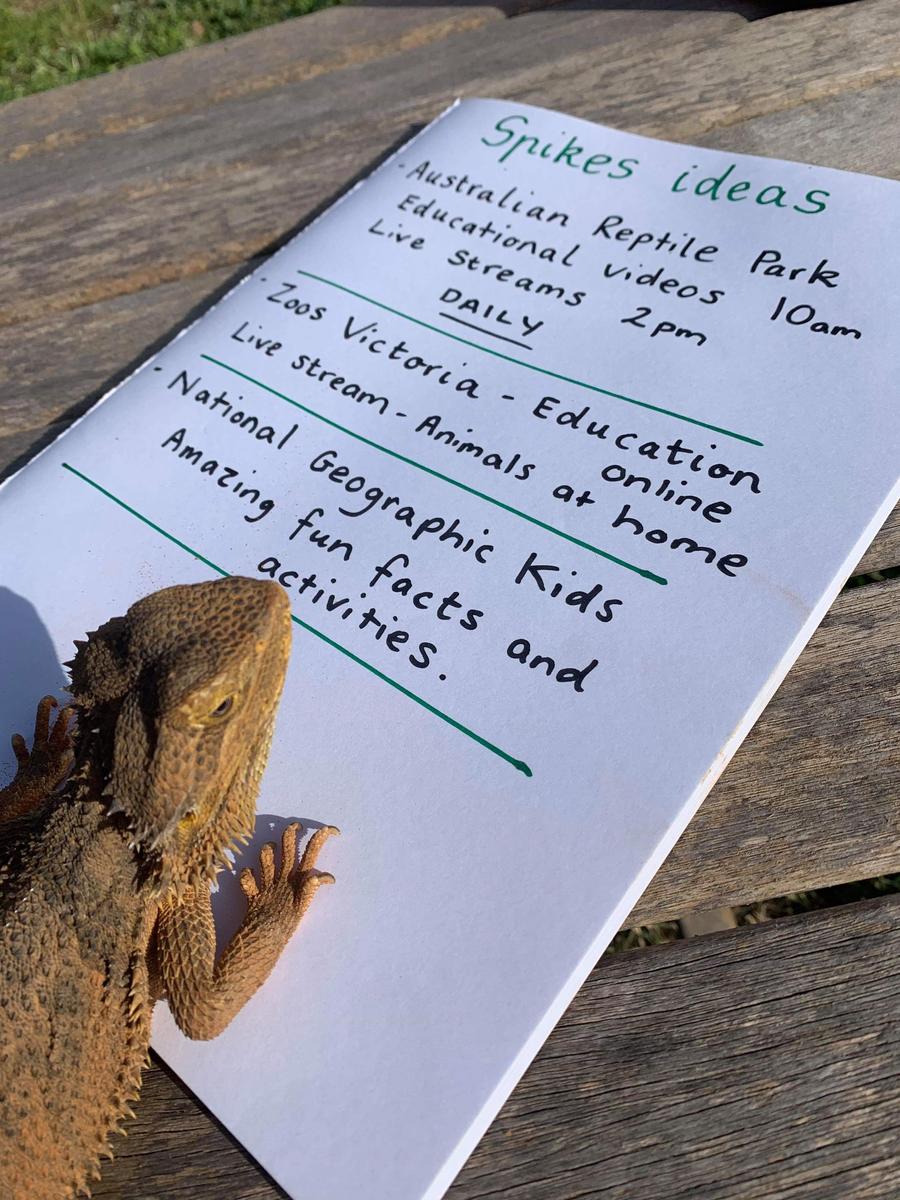 Spikes ideas
· Australian Reptile Park
Educational videos 10am
Live streams 2pm
DAILY
· Zoos Victoria - Education
online
Live stream - Animals at home
· National Geographic Kids
Amazing fun facts and
activities.